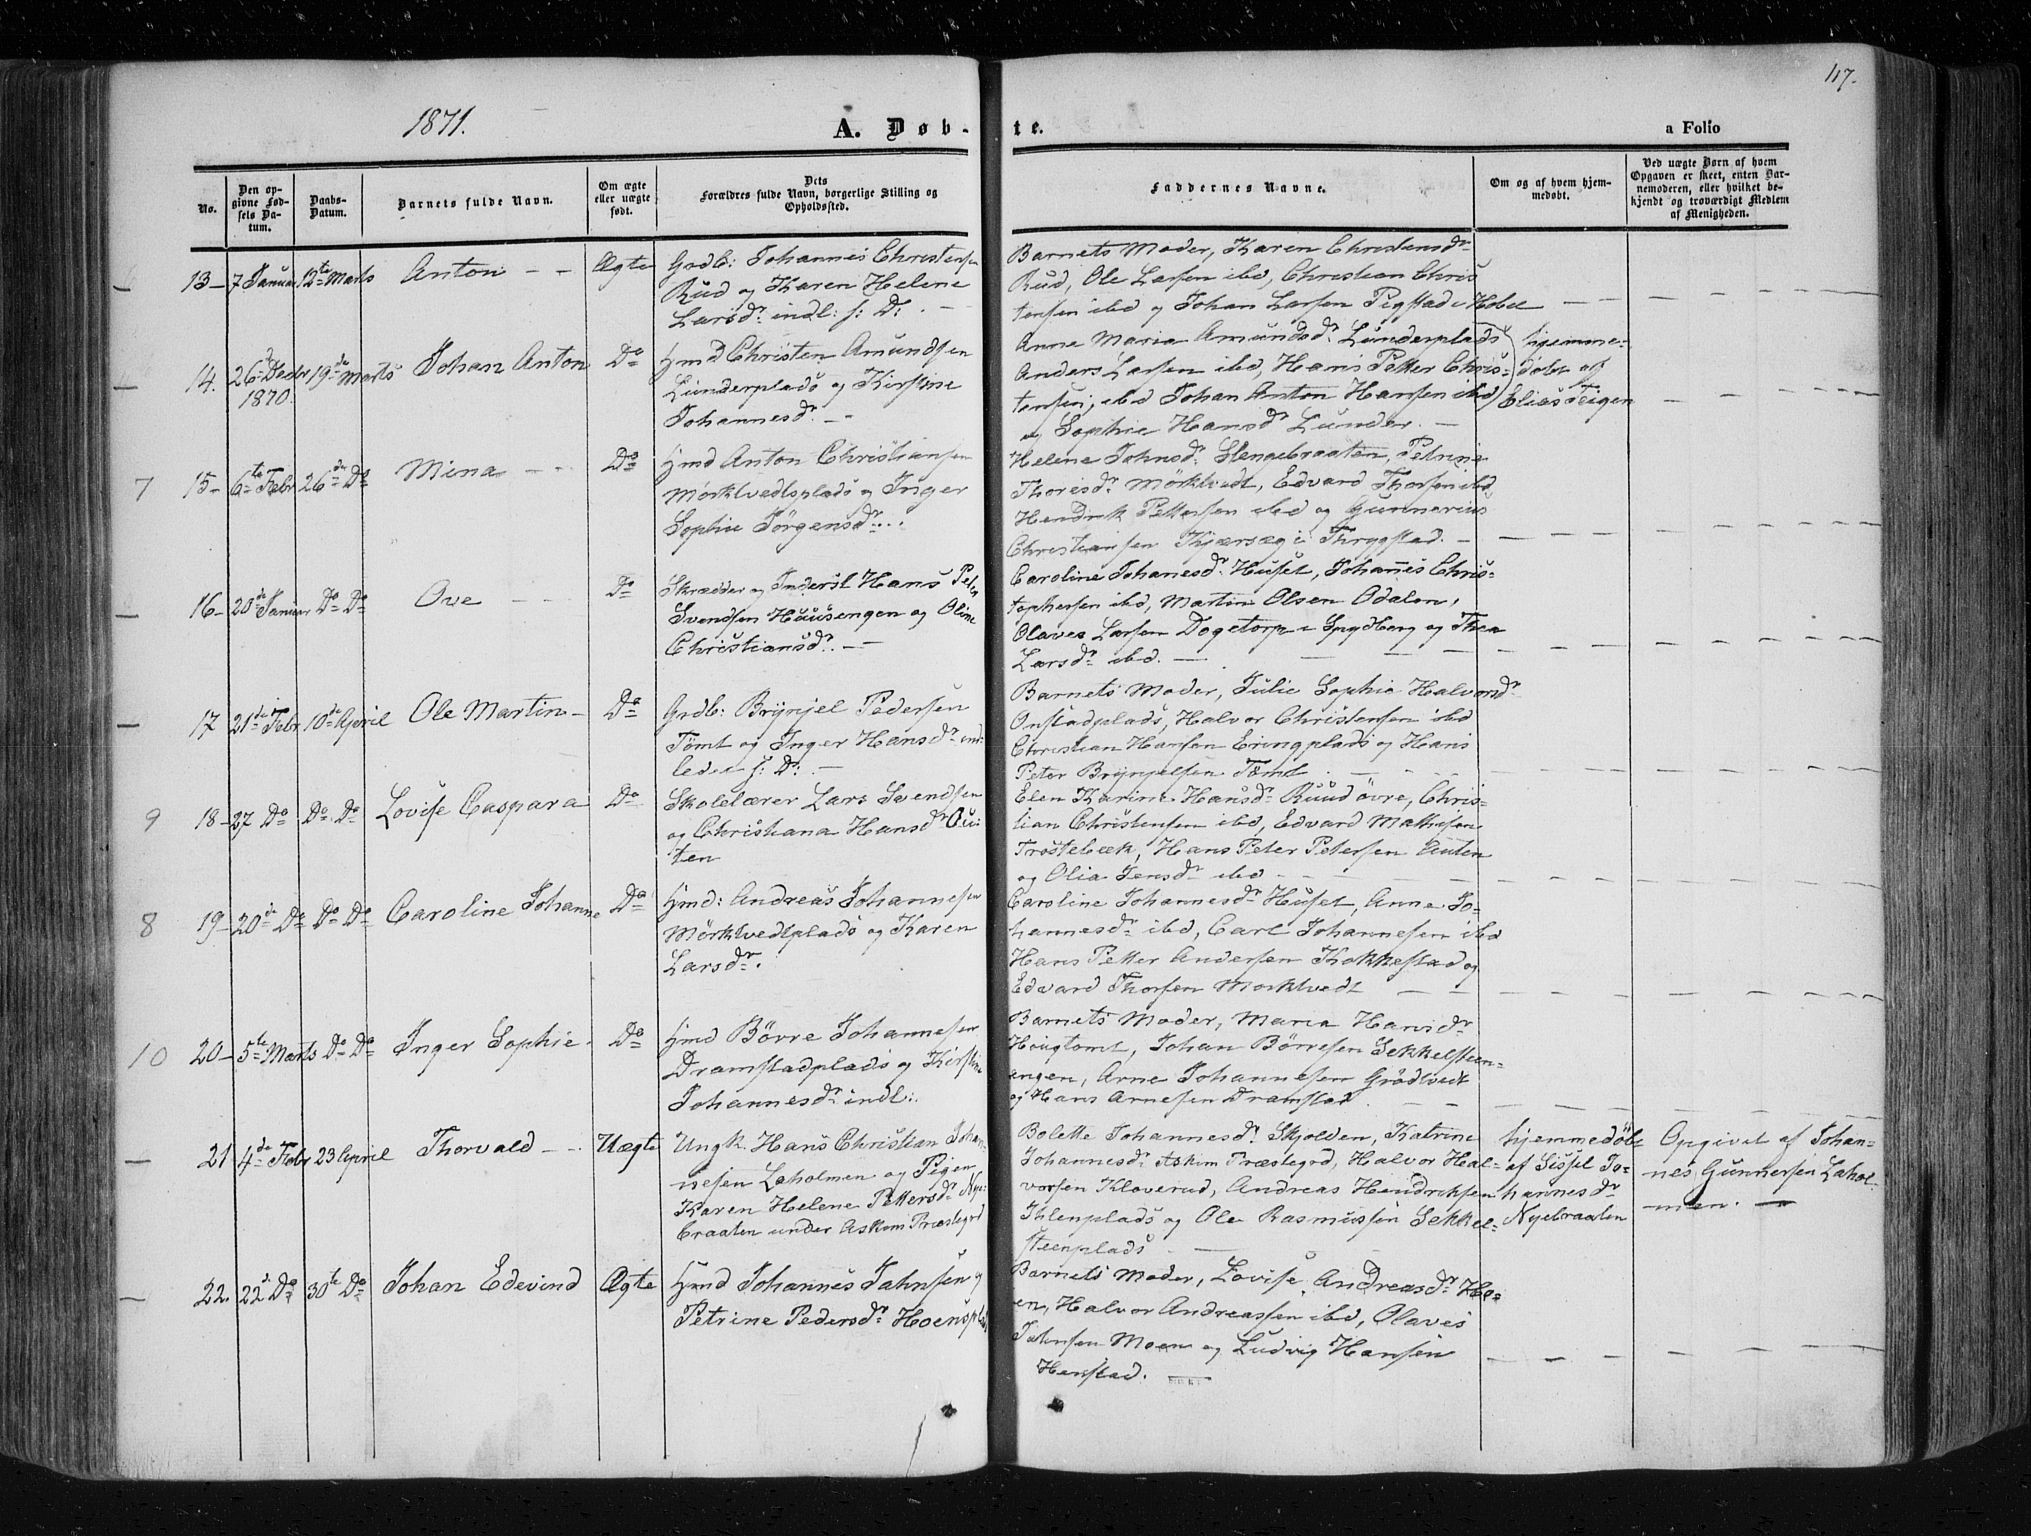 117.
1871.
A. Døb-
te.
a Folio
No.
Den op-
givne Fød-
sels Da-
tum.
Daabs-
Datum.
Barnets fulde Navn.
Om ægte
eller uægte
født.
Dets
Forældres fulde Navn, borgerlige Stilling og
Opholdssted.
Faddernes Navne.
Om og af hvem hjem-
medøbt.
Ved uægte Børn af hvem
Opgaven er skeet, enten Bar-
nemoderen, eller hvilket be-
kjendt og troværdigt Medlem
af Menigheden.
13 – 7 Januar 12te Marts Anton – – Ægte
Grdb: Johannes Christensen
Rud og Karen Helene
Larsdr. indl: f: D: –
Barnets Moder, Karen Christensdr
Rud, Ole Larsen ibd, Christian Chris
tensen ibd og Johan Larsen Pigstad i Hobel
14. 26de Decbr 1870. 19de Marts Johan Anton Do
Hmd Christen Amundsen
Lunderplads og Kirstine
Johannesdr. –
Anne Maria Amundsdr. Lunderplads
Anders Larsen ibd, Hans Petter Chris-
tensen, ibd Johan Anton Hansen ibd
og Sophie Hansdr Lunder. –
hjemme-
døbt af
Elias Teigen
7 15 – 6te Febr 26de Do Mina – – Do
Hmd Anton Christiansen
Mörktvedtsplads og Inger
Sophie Jörgensdr.
Helene Johnsdr. Slengebraaten, Petrine
Thoresdr. Mörktvedt, Edvard Thorsen ibd
Hendrik Pettersen ibd og Gunnerius
Christiansen Kjærsæg i Thrygstad. –
16 – 20de Januar Do Do Ove – – Do
Skrædder og Inderst Hans Peter
Svendsen Huusengen og Oline
Christiansdr. –
Caroline Johanesdr. Huset, Johannes Chris-
tophersen ibd, Martin Olsen Odalen,
Olaves Larsen Dogetorp i Spydberg og Thea
Larsdr ibd. –
17 21de Febr 10de April Ole Martin – Do
Grdb: Brynjel Pedersen
Tömt og Inger Hansdr ind-
leder f: D: –
Barnets Moder, Julie Sophie Halvorsdr
Onstadplads, Halvor Christensen ibd
Christian Hansen Eringplads og Hans
Peter Brynjelsen Tömt
9 18 – 27 Do Do Do Lovise Caspara Do
Skolelærer Lars Svendsen
og Christiana Hansdr Ou-
ten
Elen Karine Hansdr. Ruud övre, Chris-
tian Christensen ibd, Edvard Mathisen
Tröstebæk, Hans Peter Petersen Outen
og Olia Jensdr ibd
8 19 – 20de Do Do Do Caroline Johanne Do
Hmd: Andreas Johannesen
Mörktvedtplads og Karen
Larsdr.
Caroline Johannesdr Huset, Anne Jo-
hannesdr ibd, Carl Johannesen ibd
Hans Petter Andersen Kokkestad og
Edvard Thorsen Morktvedt
10 20 – 5te Marts Do Do Inger Sophie – Do
Hmd Börre Johannesen
Dramstadplads og Kirstine
Johannesdr. indl:
Barnets Moder, Maria Hansdr
Hougtomt, Johan Börresen Sekkelsteen-
engen, Arne Johannesen Grödtvedt
og Hans Arnesen Dramstad
21 4de Febr 23 April Thorvald – – Uægte
Ungk. Hans Christian Johan-
nesen Laholmen og Pigen
Karen Helene Pettersdr Nye-
braaten under Askim Præstegrd
Bolette Johannesdr. Skjolden, Katrine
Johannesdr. Askim Præstegrd, Halvor Hal-
vorsen Kloverud, Andreas Hendriksen
Ihlenplads og Ole Rasmussen Sekkel-
steenplads
hjemmedöbt
af Sissel Jo-
hannesdr
Nyebraaten
Opgivet af Johan-
nes Gunnersen Lahol-
men. –
22. 22de Do 30te Do Johan Edevind Ægte
Hmd Johannes Jahnsen og
Petrine Pedersdr. Hoensplads
Barnets Moder, Lovise Andreasdr. Ho-
en, Halvor Andreassen ibd, Olaves
Jahnsen Moen og Ludvig Hansen
Henstad.